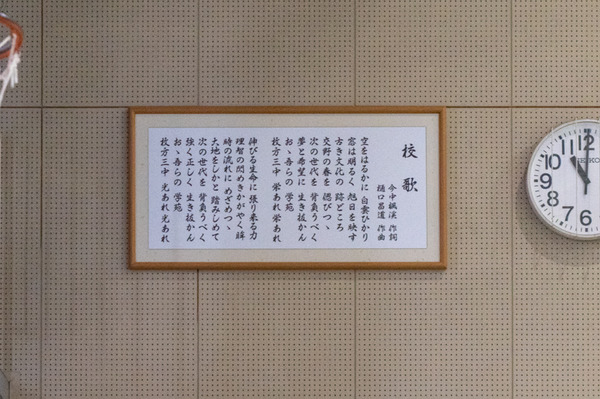 校歌
今中楓渓 作詞
樋口昌道 作曲
空をはるかに 白雲ひかり
窓は明るく 旭日を映す
古き文化の 跡どころ
交野の春を 偲びつゝ
次の世代を 背負うべく
夢と希望に 生き抜かん
おゝ吾らの 学苑
枚方三中 栄あれ栄あれ
伸びる生命に 張り来る力
理智の閃めきかがやく眸
時の流れに めざめつゝ
大地をしかと 踏みしめて
次の世代を 背負うべく
強く正しく 生き抜かん
おゝ吾らの 学苑
枚方三中 光あれ光あれ
SEIKO
12
1
2
3
4
5
6
7
8
9
10
11